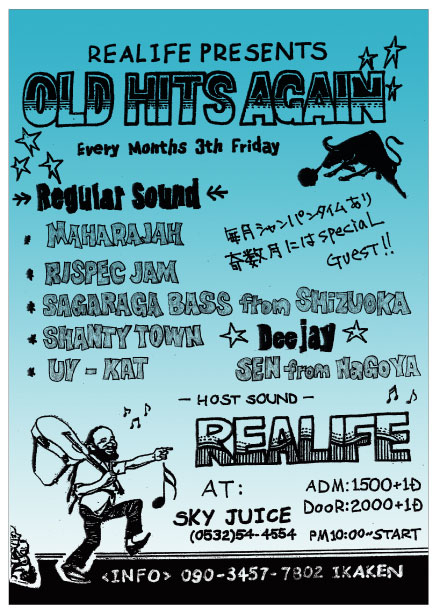 REALIFE PRESENTS
OLD HITS AGAIN
Every Months 3th Friday
Regular Sound
毎月シャンパンタイムあり
奇数月にはspecial
Guest!!
* MAHARAJAH
* RJSPEC JAM
* SAGARAGA BASS from SHiZUOKA
* SHANTY TOWN
Deejay
* UV - KAT
SEN from NaGoYA
- HOST SOUND -
REALIFE
AT:
SKY JUICE
(0532)54-4554
ADM:1500+1D
DooR:2000+1D
PM10:00~START
<INFO> 090-3457-7802 IKAKEN